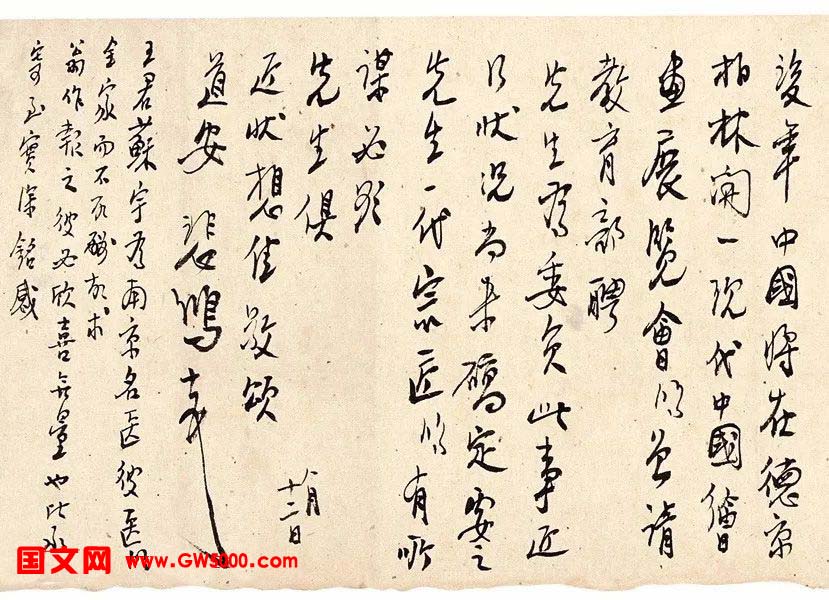 後年中國將在德京
柏林開一現代中國繪
畫展覽會請
教育部聘
先生為委員此事近
日狀況尚未確定要之
先生一代宗匠倘有所
謀必
先生俱
近狀想佳敬頌
道安 悲鴻
月
十二日
王君蘇宇為南京名醫彼醫
全家而不取酬故求
翁作報之彼必欣喜無量也
寄至實深銘感
国文网 www.GW5000.com